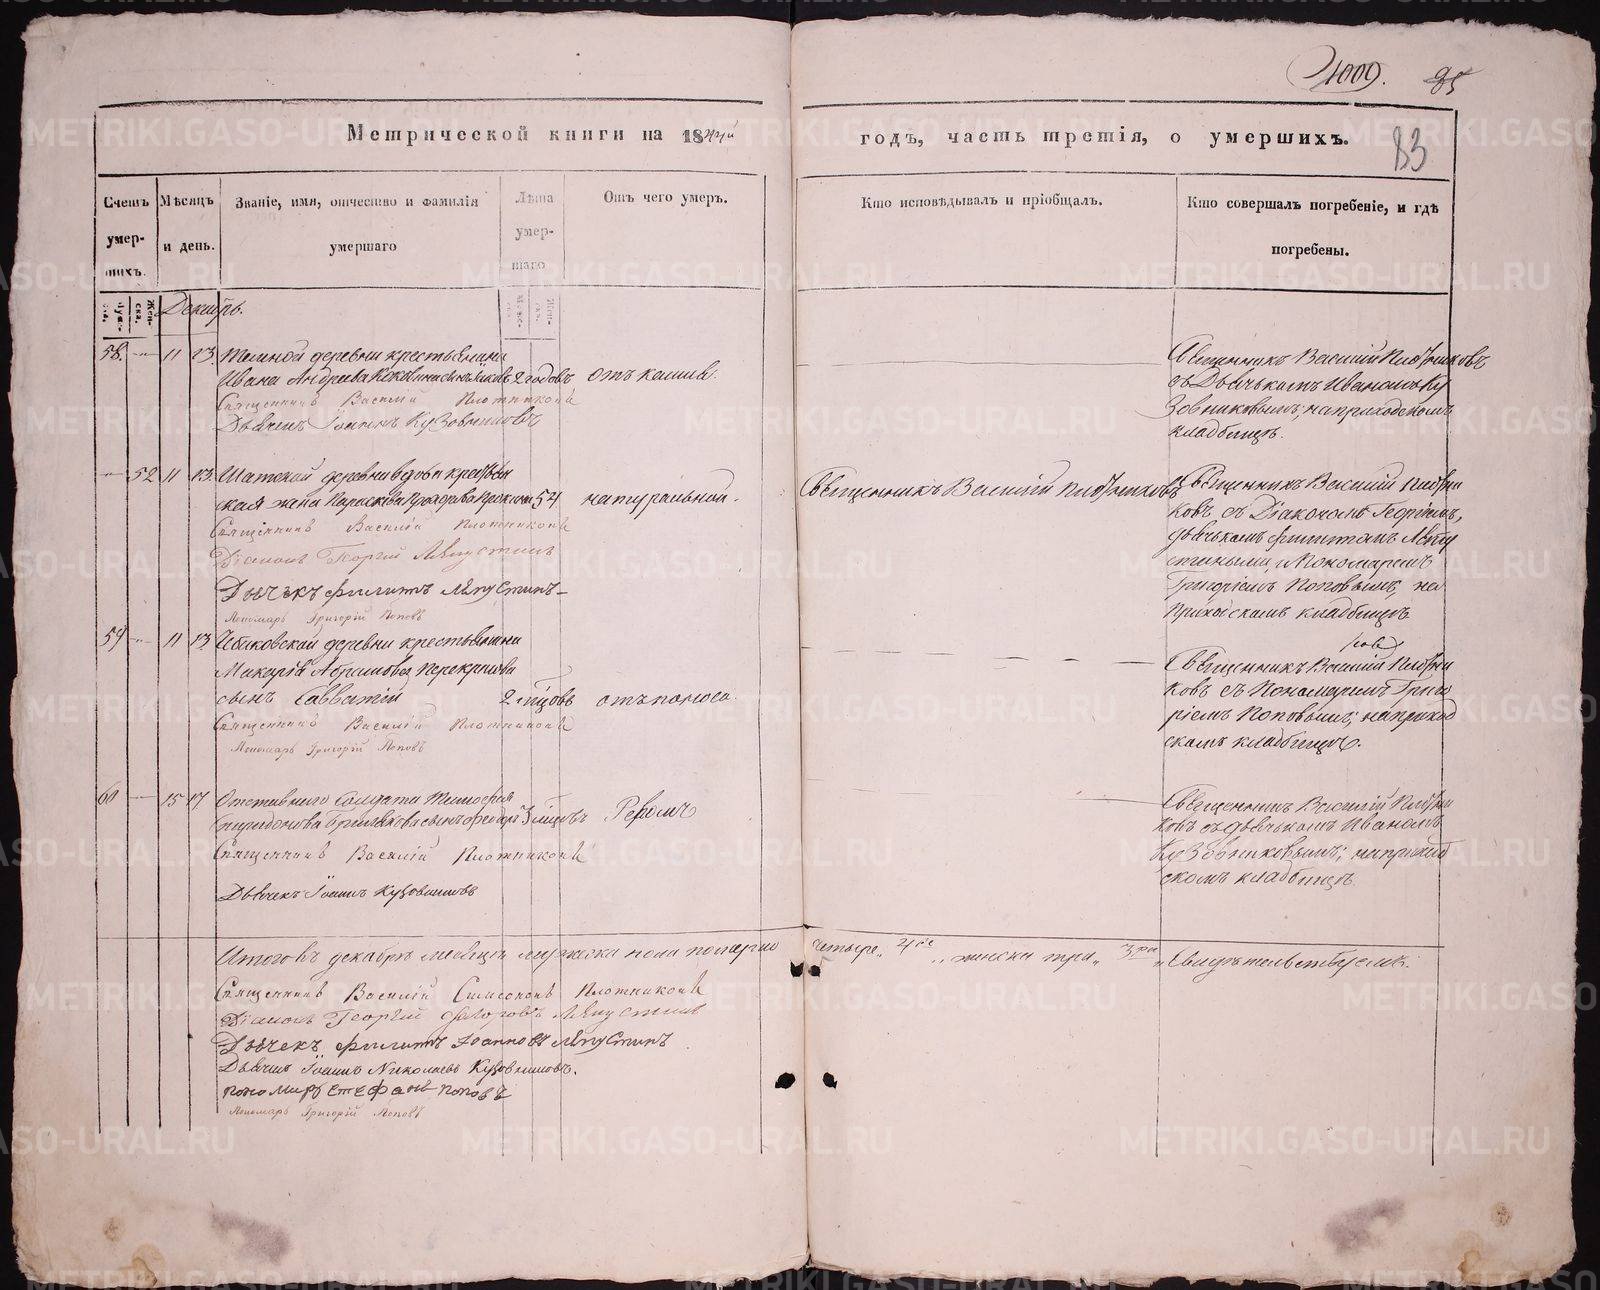 1009. 85
83
Метрической книги на 1844й годъ, часть третія, о умершихъ.
Счетъ умер- шихъ.
Мѣсяцъ и день.
Званіе, имя, отчество и фамилія умершаго
Лѣта умер- шаго
Отъ чего умеръ.
Кто исповѣдывалъ и пріобщалъ.
Кто совершалъ погребеніе, и гдѣ погребены.
Декабрь.
58. 11 13 деревни крестьянина
Ивана Андреева 2 годовъ отъ кашля.
Священникъ Василій Плотниковъ
Дьячекъ Іоаннъ Кузовниковъ
Священникъ Василій Плотниковъ
съ Дьячькомъ Иваномъ Ку
зовниковымъ; на приходскомъ
кладбищѣ.
52 11 13 деревни вдова крестьян
ская жена 54 натуральной.
Священникъ Василій Плотниковъ
Діаконъ Георгій Ляпустинъ
Дьячекъ Филиппъ Ляпустинъ
Пономарь Григорій Поповъ
Священникъ Василій Плотниковъ
Священникъ Василій Плотни
ковъ съ Діакономъ Георгіемъ,
дьячькомъ Филиппомъ Ляпу
стиными, и Пономаремъ
Григоріемъ Поповымъ, на
Приходскомъ кладбищѣ
59 11 13 деревни крестьянина
Макарія Абрамова
сынъ Савватій 2 мѣсяцовъ отъ поноса.
Священникъ Василій Плотниковъ
Пономарь Григорій Поповъ
Священникъ Василій Плотни
ковъ съ Пономаремъ Григо
ріемъ Поповымъ; на приход
скомъ кладбищѣ.
60 15 17 Отставнаго Солдата Тимофея
Спиридонова сынъ Федоръ 3 мѣсяцовъ
Священникъ Василій Плотниковъ
Дьячекъ Іоаннъ Кузовниковъ
Священникъ Василій Плотни
ковъ съ дьячькомъ Иваномъ
Кузовниковымъ; на приход
скомъ кладбищѣ.
Итого въ декабрѣ месяцѣ мужеска пола померло четыре „ 4ре „ женска три „ 3ри „ Свидѣтельствуемъ:
Священникъ Василій Симеоновъ Плотниковъ
Діаконъ Георгій Ляпустинъ
Дьячекъ Филиппъ Іоанновъ Ляпустинъ
Дьячекъ Іоаннъ Николаевъ Кузовниковъ.
пономарь Стефанъ поповъ
Пономарь Григорій Поповъ
METRIKI.GASO-URAL.RU